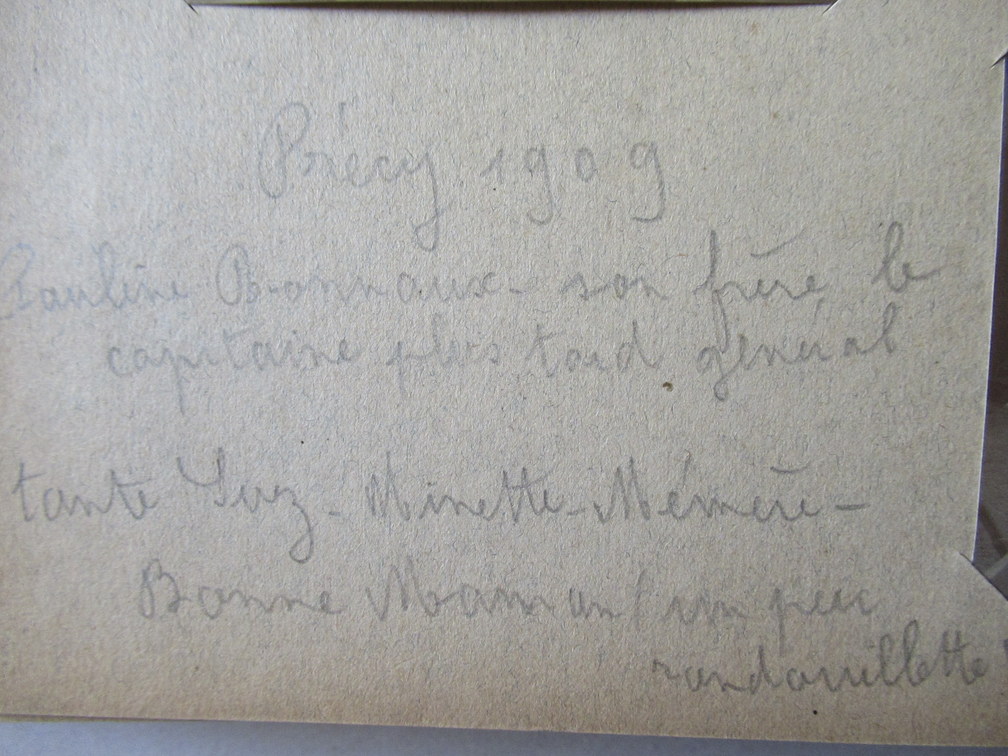 Précy 1909
Pauline Bonnaux - son frère le
capitaine plus tard général
tante Suz - Minette - Mémère -
Bonne Maman (un peu